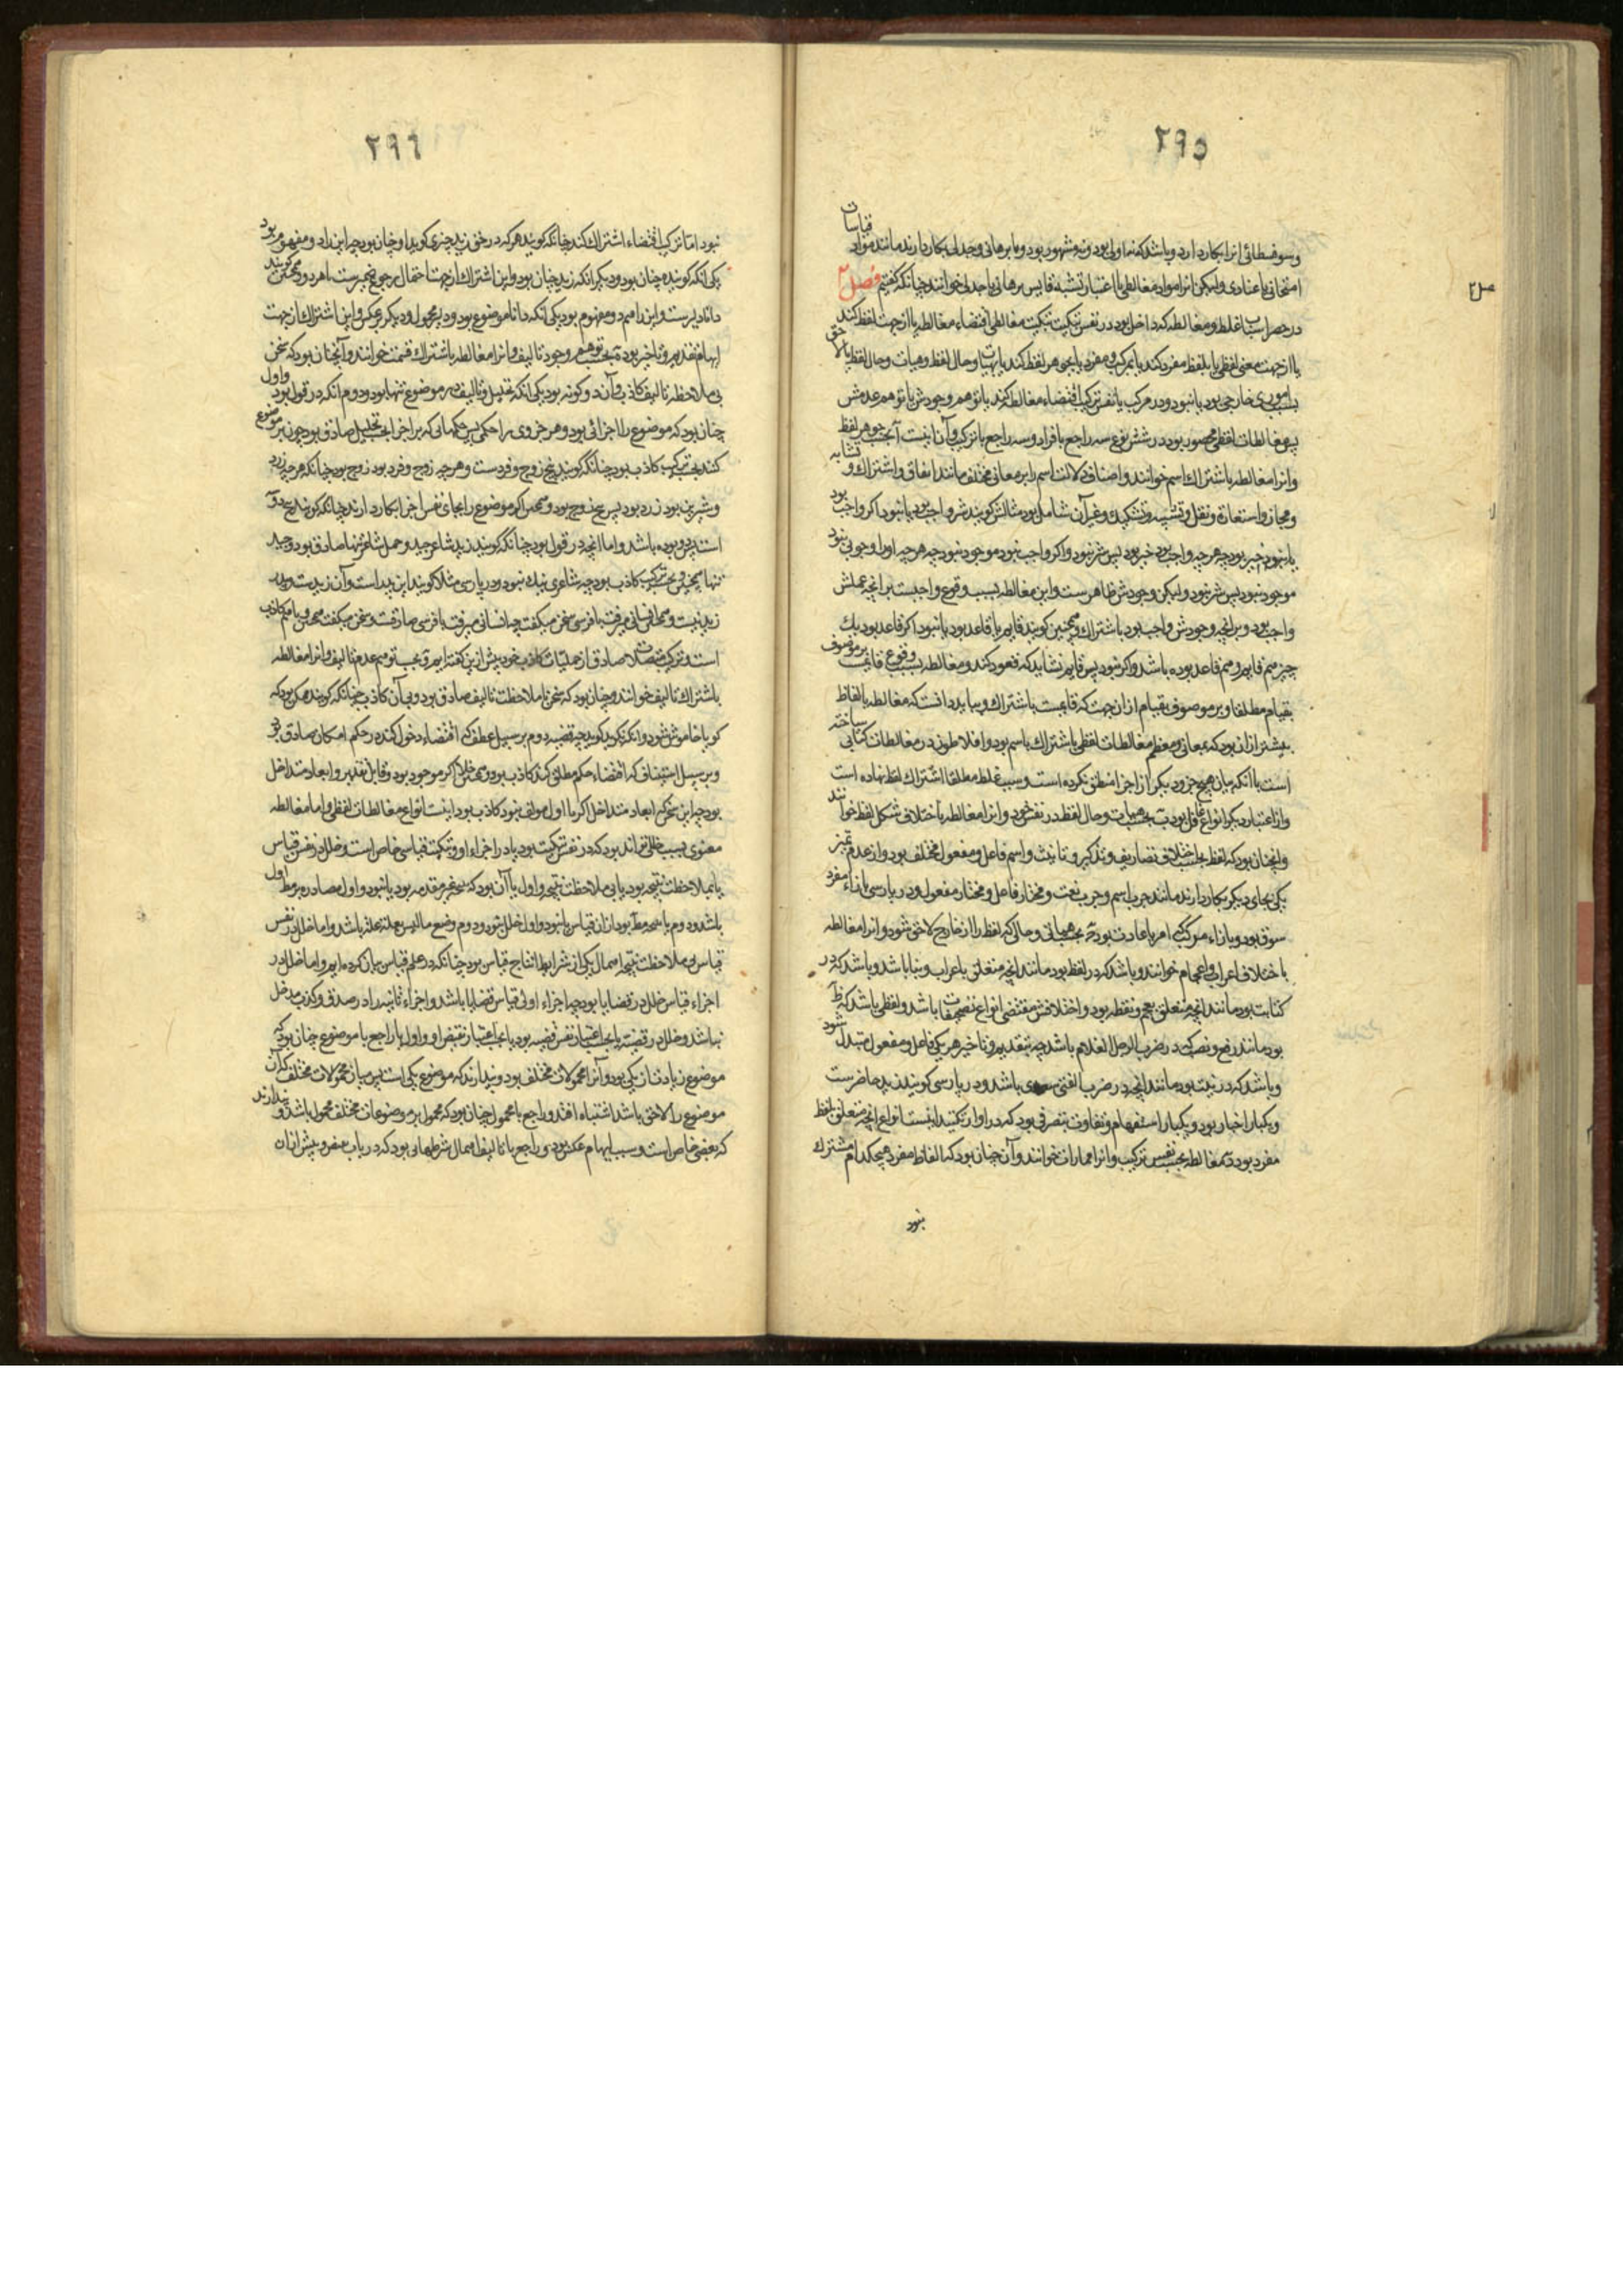 ٢٩٥
قیاسات
وسوفسطائی انرا بکار دارد و باشد که نه اولی بود و نه مشهور بود و با برهانی و جدلی بکار دارند مانند مواد
امتحانی یا عنادی ولیکن انرا مواد مغالطی باعتبار تشبه قایس برهانی یا جدلی خوانند چنانکه گفتیم فصل ۲
در حصر اسباب غلط و مغالطه که داخل بود در نفس تبکیت تبکیت مغالطی اقتضاء مغالطه یا از جهت لفظ کند
یا از جهت معنی لفظی یا بلفظ مفرد کند یا بمرکب و مفرد یا بجوهر لفظ کند یا بهیات و حال لفظ و هیات و حال لفظ یا لاحق
بسبب اموری خارجی بود یا نبود و در مرکب یا نفس ترکیب اقتضاء مغالطه کند یا توهم وجودش یا توهم عدمش
پس مغالطات لفظی محصور بود در شش نوع سه راجع با افراد و سه راجع با ترکیب و آن اینست آ بحسب جوهر لفظ
وانرا مغالطه باشتراک اسم خوانند و اصناف دلالت اسم را بر معانی مختلف مانند اتفاق و اشتراک و تشابه
ومجاز و استعارة و نقل و تشبیه و تشکیک و غیر آن شامل بود مثالش گویند شر واجب بود یا نبود اگر واجب بود
یا نبود خیر بود چه هر چه واجب بود خیر بود پس شر نبود و اگر واجب نبود موجود نبود چه هر چه اورا وجوبی نبود
موجود نبود پس شر نبود ولیکن وجودش ظاهرست و این مغالطه بسبب وقوع واجبست بر انچه عملش
واجب بود و بر انچه وجودش واجب بود باشتراک و همچنین گویند قایم یا قاعد بود یا نبود اگر قاعد بود یک
چیز هم قایم و هم قاعد بوده باشد و اگر نبود پس قایم نشاید که قعود کند و مغالطه بسبب وقوع قایمست بر موصوف
بقیام مطلقا و بر موصوف بقیام از ان جهت که قایمست باشتراک و بباید دانست که مغالطه بالفاظ
بیشتر از ان بود که بمعانی و معظم مغالطات لفظی باشتراک باسم بود و افلاطون در مغالطات کتابی ساخته
است با آنکه میان هیچ جزو دیگر از اجزا منطق نکرده است و سبب غلط مطلقا اشتراک لفظ نهاده است
واز اعتبار دیگر انواع غافل بود ب بحسب هیات و حال لفظ در نفس خود و انرا مغالطه باختلاف شکل لفظ خوانند
وانچنان بود که لفظ بحسب اختلاف تصاریف و تذکیر و تانیث و اسم فاعل و مفعول مختلف بود و از عدم تمیز
یکی بجای دیگر بکار دارند مانند حرب اسم و حرب نعت و مختار فاعل و مختار مفعول و در پارسی بازاء مفرد
سوق بود و بازاء مرکب امر باعادت بود ج بحسب هیاتی و حالی که لفظ را از خارج لاحق شود و انرا مغالطه
باختلاف اعراب و اعجام خوانند و باشد که در لفظ بود مانند انچه متعلق باعراب و بنا باشد و باشد که در
کتابت بود مانند انچه متعلق بعجم و نقطه بود و اختلافش مقتضی انواع تصحیفات باشد و لفظی باشد که ظاهر
بود مانند رفع و نصب که در ضرب الرجل الغلام باشد چه بتقدیم و تاخیر هر یکی فاعل و مفعول مبتدل شود
وباشد که در نیت بود مانند انچه در ضرب الفتی موسی باشد و در پارسی گویند زید حاضرست
ویکبار اخبار بود و یکبار استفهام و تفاوت بتصرفی بود که در اواز کنند اینست انواع انچه متعلق بلفظ
مفرد بود د مغالطه بحسب نفس ترکیب و انرا مماراة خوانند و آن چنان بود که الفاظ مفرد هیچکدام مشترک
نبود
٢٩٦
نبود اما ترکیب اقتضاء اشتراک کند چنانکه گویند هر که در حق زید چیزی گوید او چنان بود چه این را دو مفهوم بود
یکی انکه گوینده چنان بود و دیگر انکه زید چنان بود و این اشتراک از جهت احتمال رجوع ضمیرست باهر دو و همچنین گویند
دانا دیرست و این را هم دو مفهوم بود یکی انکه دانا موضوع بود و دیر محمول و دیگر بر عکس و این اشتراک از جهت
ابهام تقدیم و تاخیر بود ه بحسب توهم وجود تالیف و انرا مغالطه باشتراک قسمت خوانند و آنچنان بود که سخن
بی ملاحظه تالیف کاذب و آن دو گونه بود یکی انکه تحلیل و تالیف در موضوع تنها بود و دوم انکه در قول بود و اول
چنان بود که موضوع را اجزائی بود و هر جزوی را حکمی پس حکمهائی که بر اجزا بحسب تحلیل صادق بود چون بر موضوع
کنند بحسب ترکیب کاذب بود چنانکه گویند پنج زوج و فردست و هر چه زوج و فرد بود زوج بود چنانکه هر چه زرد
وشیرین بود زرد بود پس پنج زوج بود و همچنین اگر موضوع را بجای نفس اجزا بکار دارند چنانکه گویند پنج دو
است پس دو بوده باشد و اما انچه در قول بود چنانکه گویند زید شاعر جید و حمل شاعر تنها صادق بود و جید
تنها همچنین و بحسب ترکیب کاذب بود چه شاعری نیک نبود و در پارسی مثلا گویند این پدر است و آن زیدست و پدر
زید نیست
است و ترکیب متصلات صادق از حملیات کاذب خود پیش ازین گفته ایم و بحسب توهم عدم تالیف و انرا مغالطه
باشتراک تالیف خوانند و چنان بود که سخن با ملاحظت تالیف صادق بود و بی آن کاذب چنانکه گویند ممکن بود که
گویا خاموش شود و انکه نگوید گوید چه قضیه دوم بر سبیل عطف که اقتضاء دخول کند در حکم امکان صادق بود
وبر سبیل استیناف که اقتضاء حکم مطلق کند کاذب بود
بود چه این سخن که ابعاد متداخل اگر با اول مولف نبود کاذب بود اینست انواع مغالطات لفظی و اما مغالطه
معنوی بسبب خللی تواند بود که در نفس تبکیت بود یا در اجزاء او و تبکیت قیاسی خاص است و خلل در نفس قیاس
یا بملاحظت نتیجه بود یا بی ملاحظت نتیجه و اول یا آن بود که نتیجه غیر مقدمه بود یا نبود و اول مصادره بر مط اول
باشد و دوم یا نتیجه مط بود از ان قیاس یا نبود و اول خلل نبود و دوم وضع مالیس بعلة علة باشد و اما خلل در نفس
قیاس بی ملاحظت نتیجه اهمال یکی از شرایط انتاج قیاس بود چنانکه در علم قیاس بیان کرده ایم و اما خلل در
اجزاء قیاس خلل در قضایا بود چه اجزاء اولی قیاس قضایا باشد و اجزاء ثانیه را در صدق و کذب مدخل
نباشد و خلل در قضیه یا بحسب اعتبار نفس قضیه بود یا بحسب اعتبار نقیض او و اول یا راجع با موضوع چنان بود که
موضوع زیادت از یکی بود و آنرا محمولات مختلف بود و پندارند که موضوع یکی است پس میان محمولات مختلف که آن
موضوع را لاحق باشد اشتباه افتد و راجع با محمول چنان بود که محمول بر موضوعات مختلف محمول باشد و پندارند
که بعضی خاص است و سبب ایهام عکس بود و راجع با تالیف اهمال شرطهائی بود که در باب نقیض و پیش از ان